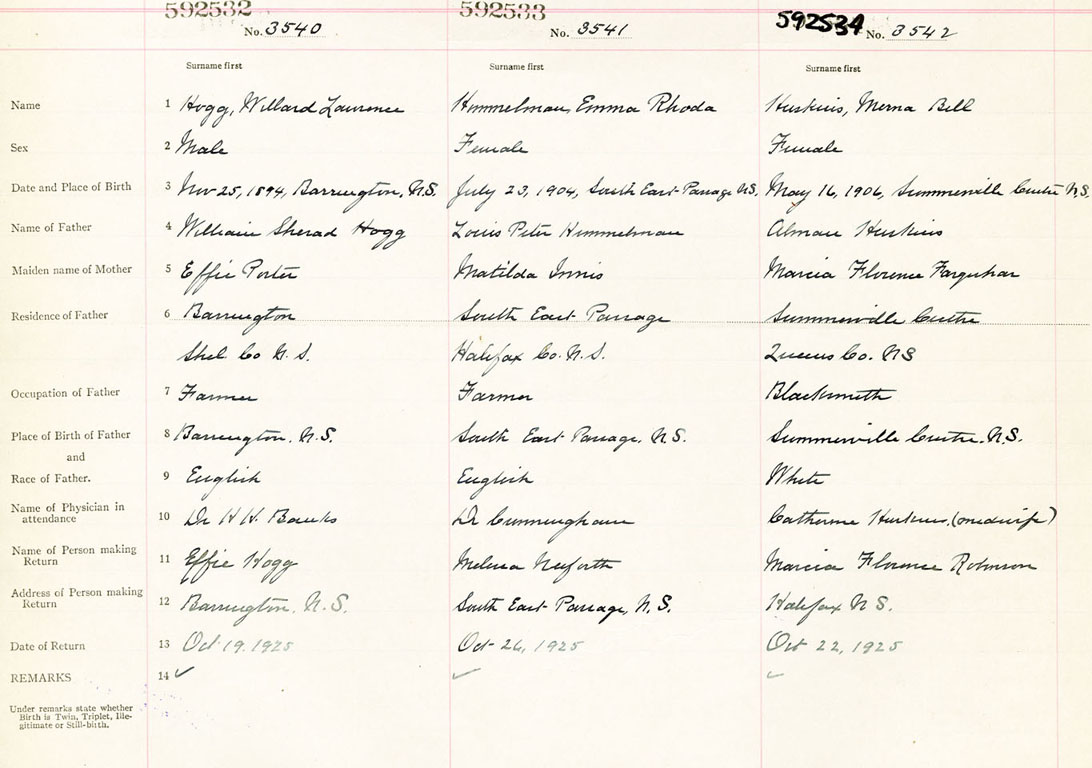 592532 592533 592534
No. 3540 No. 3541 No. 3542
Surname first Surname first Surname first
Name 1 Hogg, Willard Lawrence Himmelman, Emma Rhoda Huskins, Merna Bell
Sex 2 Male Female Female
Date and Place of Birth 3 Nov 25, 1894, Barrington, N.S. July 23, 1904, South East Passage N.S. May 16, 1906, Summerville Centre N.S.
Name of Father 4 William Sherad Hogg Louis Peter Himmelman Alman Huskins
Maiden name of Mother 5 Effie Porter Matilda Innis Marcia Florence Farquhar
Residence of Father 6 Barrington South East Passage Summerville Centre
Shel Co N.S. Halifax Co. N.S. Queens Co. NS
Occupation of Father 7 Farmer Farmer Blacksmith
Place of Birth of Father 8 Barrington, N.S. South East Passage, N.S. Summerville Centre, N.S.
and
Race of Father. 9 English English White
Name of Physician in
attendance 10 Dr H. H. Banks Dr Cunningham Catherine Huskins, (midwife)
Name of Person making
Return 11 Effie Hogg Melina Neiforth Marcia Florence Robinson
Address of Person making
Return 12 Barrington, N.S. South East Passage, N.S. Halifax N S.
Date of Return 13 Oct 19, 1925 Oct 26, 1925 Oct 22, 1925
REMARKS 14 ✓ ✓ ✓
Under remarks state whether
Birth is Twin, Triplet, Ille-
gitimate or Still-birth.